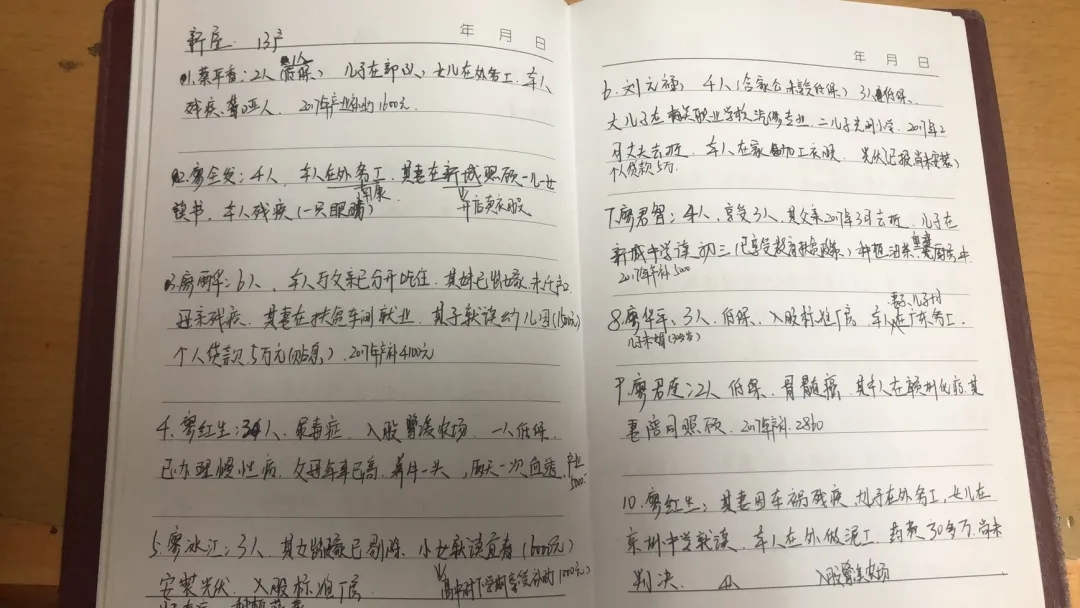 新屋 13户
年 月 日
1人
01.蔡平香:2人(低保) 儿子在部队,女儿在外务工,本人
残疾、聋哑人. 2017年产业补助1600元.
02.廖全发:4人, 本人在外务工,其妻在新城照顾一儿一女
南康
读书,本人残疾(一只眼睛) 开店卖衣服
03.廖丽华:6人, 本人与父亲已分开吃住.其妹已出嫁,未迁户口
母亲残疾,其妻在扶贫车间就业,其子就读幼儿园(1500元)
个人贷款5万元(贴息),2017年产补4100元
4.廖红生:3人,尿毒症,入股 农场,一人低保,
已办理慢性病,父母年事已高,养牛一头,两天一次血透,产业
5000.
5.廖冰江:3人,其女出嫁已剔除,小女就读宜春(6000元)
安装光伏,入股标准厂房 高中时下学期享受补助1000元)
年 月 日
6.刘元禄, 4人(含家仓未享低保) 3人低保,
大儿子在 职业学校汽修专业,二儿子光明小学,2017年2
月丈夫去逝,本人在家加工衣服,光伏(已报尚未安装)
个人贷款5万.
7.廖君智:4人,享受3人,其父亲2017年3月去逝,儿子在
新城中学读初三(已享受教育扶贫政策)种植油茶,
2017年产补5000
妻子、儿子均
8.廖华军,3人,低保,入股标准厂房 本人在广东务工.
儿子未婚(30多岁)
9.廖君连:2人,低保,骨髓癌,其本人在赣州化疗,其
妻陪同照顾,2017年产补.2860
10.廖红生,其妻因车祸残疾,儿子在外务工,女儿在
中学就读,本人在外做泥工, 30多万,尚未
判决. 4人 入股 农场